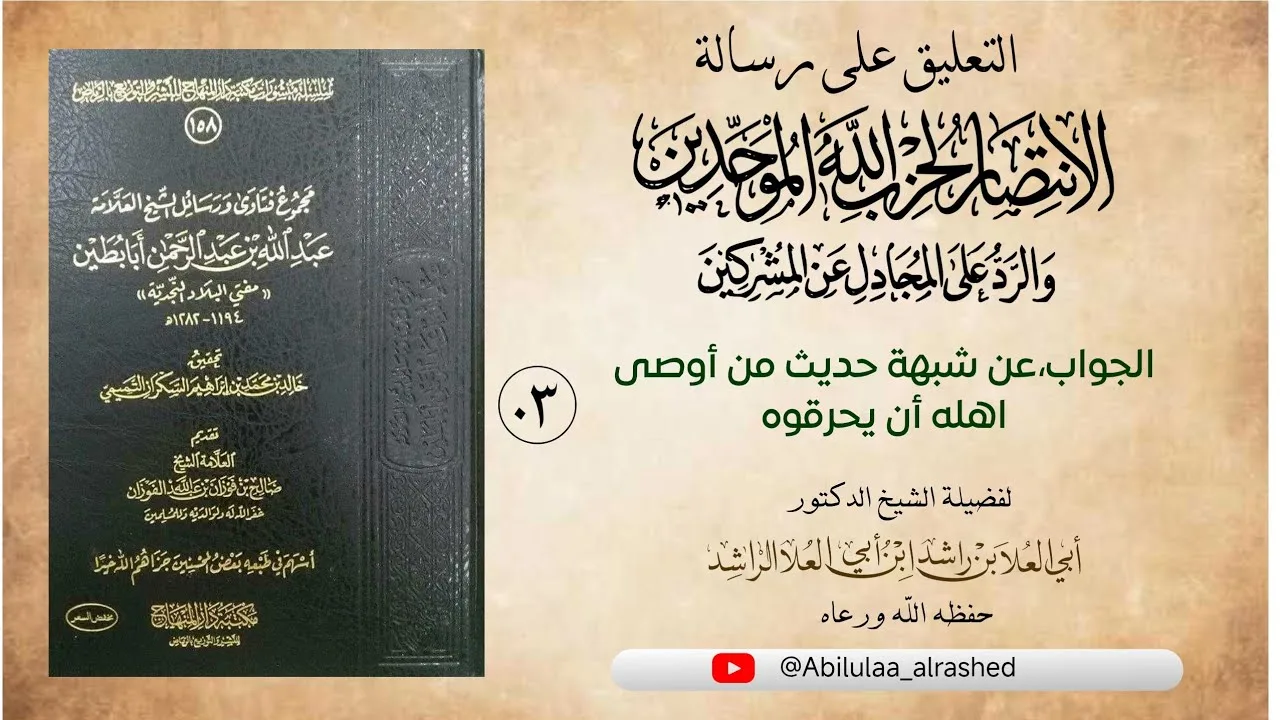 التعليق على رسالة
الانتصار لحزب الله الموحدين
والرد على المجادل عن المشركين
الجواب،عن شبهة حديث من أوصى
اهله أن يحرقوه
٠٣
لفضيلة الشيخ الدكتور
أبي العلا بن راشد ابن أبي العلا الراشد
حفظه الله ورعاه
@Abilulaa_alrashed
سلسلة منشورات مكتبة دار المنهاج للنشر والتوزيع بالرياض
١٥٨
مجموع فتاوى ورسائل الشيخ العلامة
عبد الله بن عبد الرحمن أبا بطين
«مفتي البلاد النجدية»
١١٩٤-١٢٨٢ه
تحقيق
خالد بن محمد بن إبراهيم السكران التميمي
تقديم
العلامة الشيخ
صالح بن فوزان بن عبد الله الفوزان
غفر الله له ولوالديه وللمسلمين
أسهم في طبعه بعض المحسنين جزاهم الله خيرا
مكتبة دار المنهاج
للنشر والتوزيع بالرياض
مخفض السعر